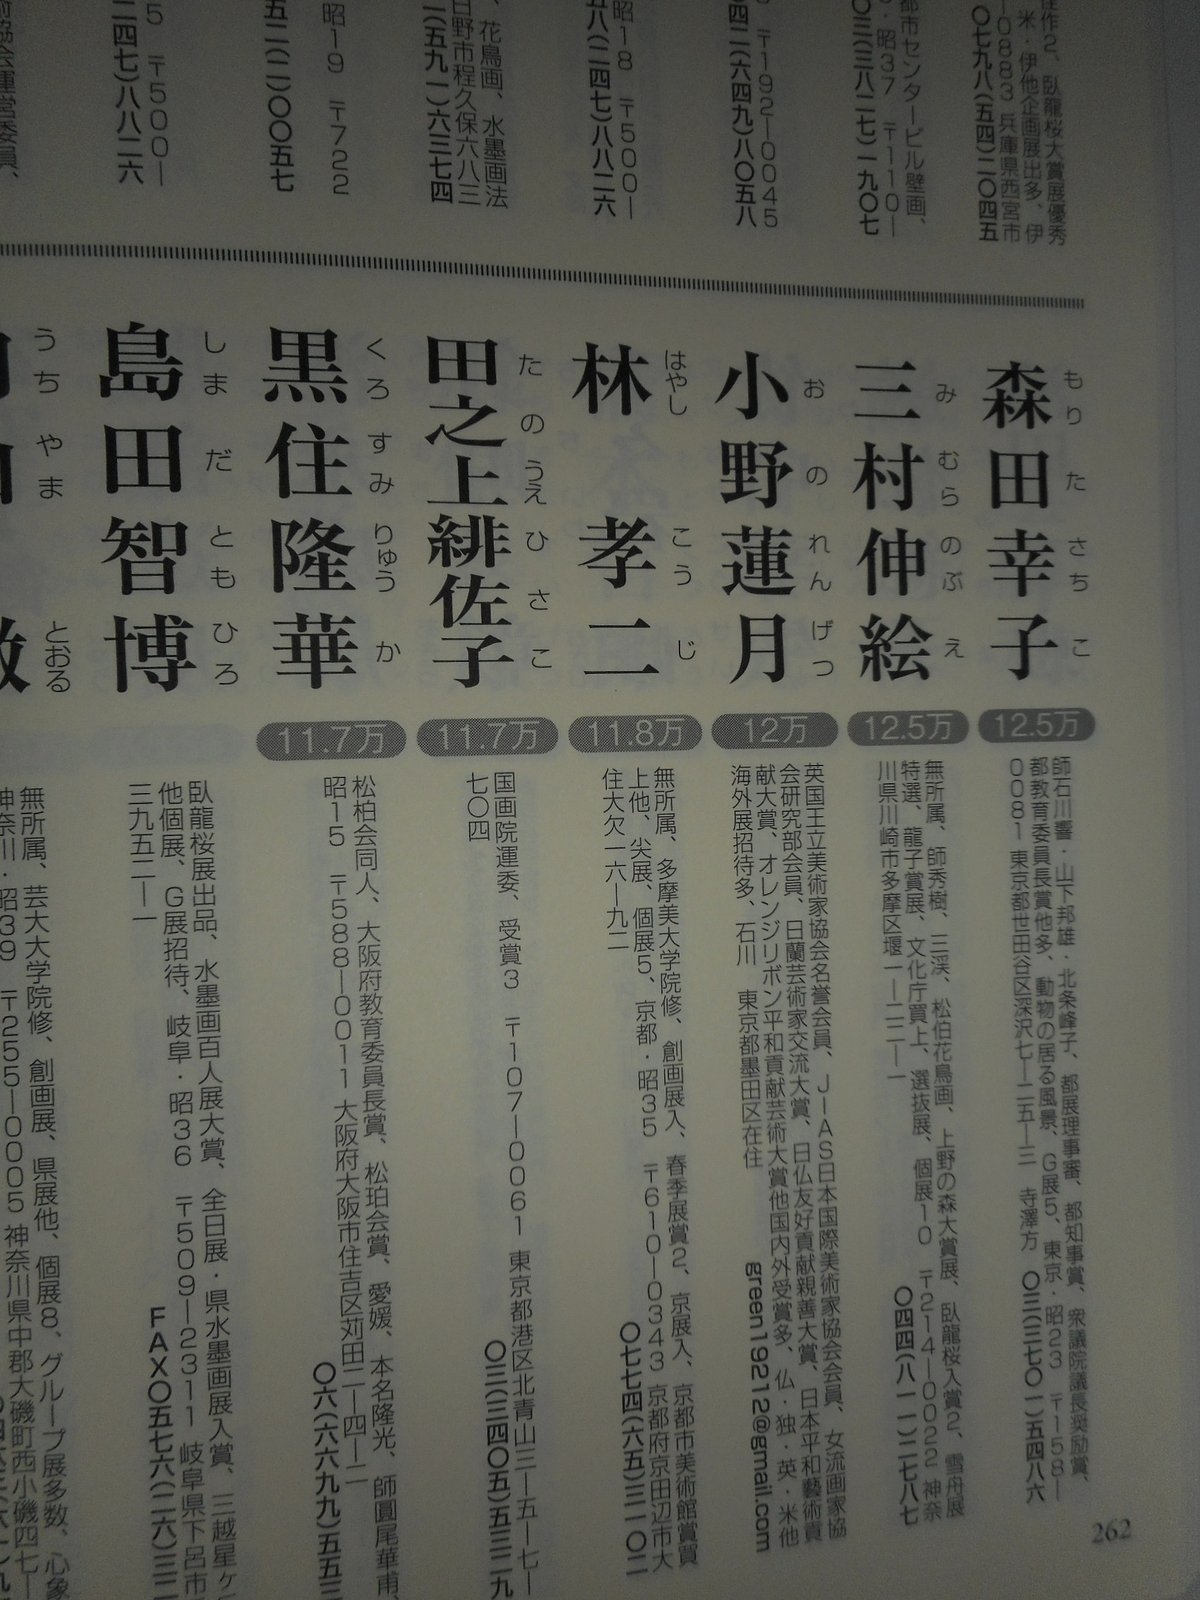 佳作2、臥龍桜大賞展優秀
米・伊他企画展出多、伊
0883 兵庫県西宮市
〇七九八(五四)二〇四五
都市センタービル壁画、
・昭37 〒110―
〇三(三八二七)一九〇七
〒192―0045
四二(六四九)八〇五八
昭18 〒500―
五八(二四七)八八二六
花鳥画、水墨画法
日野市程久保六八三
二(五九一)六三七四
昭19 〒722
五二(二)〇〇五七
5 〒500―
二四七)八八二六
協会運営委員、
森田幸子
もりたさちこ
12.5万
師石川響・山下邦雄・北条峰子、都展理事審、都知事賞、衆議院議長奨励賞、
都教育委員長賞他多、動物の居る風景、G展5、東京・昭23 〒158―
0081 東京都世田谷区深沢七―二五―三 寺澤方 〇三(三七〇一)五四八六
三村伸絵
みむらのぶえ
12.5万
無所属、師秀樹、三渓、松伯花鳥画、上野の森大賞展、臥龍桜入賞2、雪舟展
特選、龍子賞展、文化庁買上、選抜展、個展10 〒214―0022 神奈
川県川崎市多摩区堰一―二二―一 〇四四(八一一)二七八七
小野蓮月
おのれんげつ
12万
英国王立美術家協会名誉会員、JIAS日本国際美術家協会会員、女流画家協
会研究部会員、日蘭芸術家交流大賞、日仏友好貢献親善大賞、日本平和藝術貢
献大賞、オレンジリボン平和貢献芸術大賞他国内外受賞多、仏・独・英・米他
海外展招待多、石川 東京都墨田区在住 green19212@gmail.com
林孝二
はやしこうじ
11.8万
無所属、多摩美大学院修、創画展入、春季展賞2、京展入、京都市美術館賞買
上他、尖展、個展5、京都・昭35 〒610―0343 京都府京田辺市大
住大欠一六―九二 〇七七四(六五)三一〇二
田之上緋佐子
たのうえひさこ
11.7万
国画院運委、受賞3 〒107―0061 東京都港区北青山三―五―七―
七〇四 〇三(三四〇五)五三二九
黒住隆華
くろすみりゅうか
11.7万
松柏会同人、大阪府教育委員長賞、松珀会賞、愛媛、本名隆光、師圓尾華甫、
昭15 〒588―0011 大阪府大阪市住吉区苅田二―四―二
〇六(六六九九)五五三
島田智博
しまだともひろ
臥龍桜展出品、水墨画百人展大賞、全日展・県水墨画展入賞、三越星ヶ
他個展、G展招待、岐阜・昭36 〒509―2311 岐阜県下呂市
三九五二―一 FAX〇五七六(二六)三二
うちやまとおる
無所属、芸大大学院修、創画展、県展他、個展8、グループ展多数、心象
神奈川・昭39 〒255―0005 神奈川県中郡大磯町西小磯四七―
262